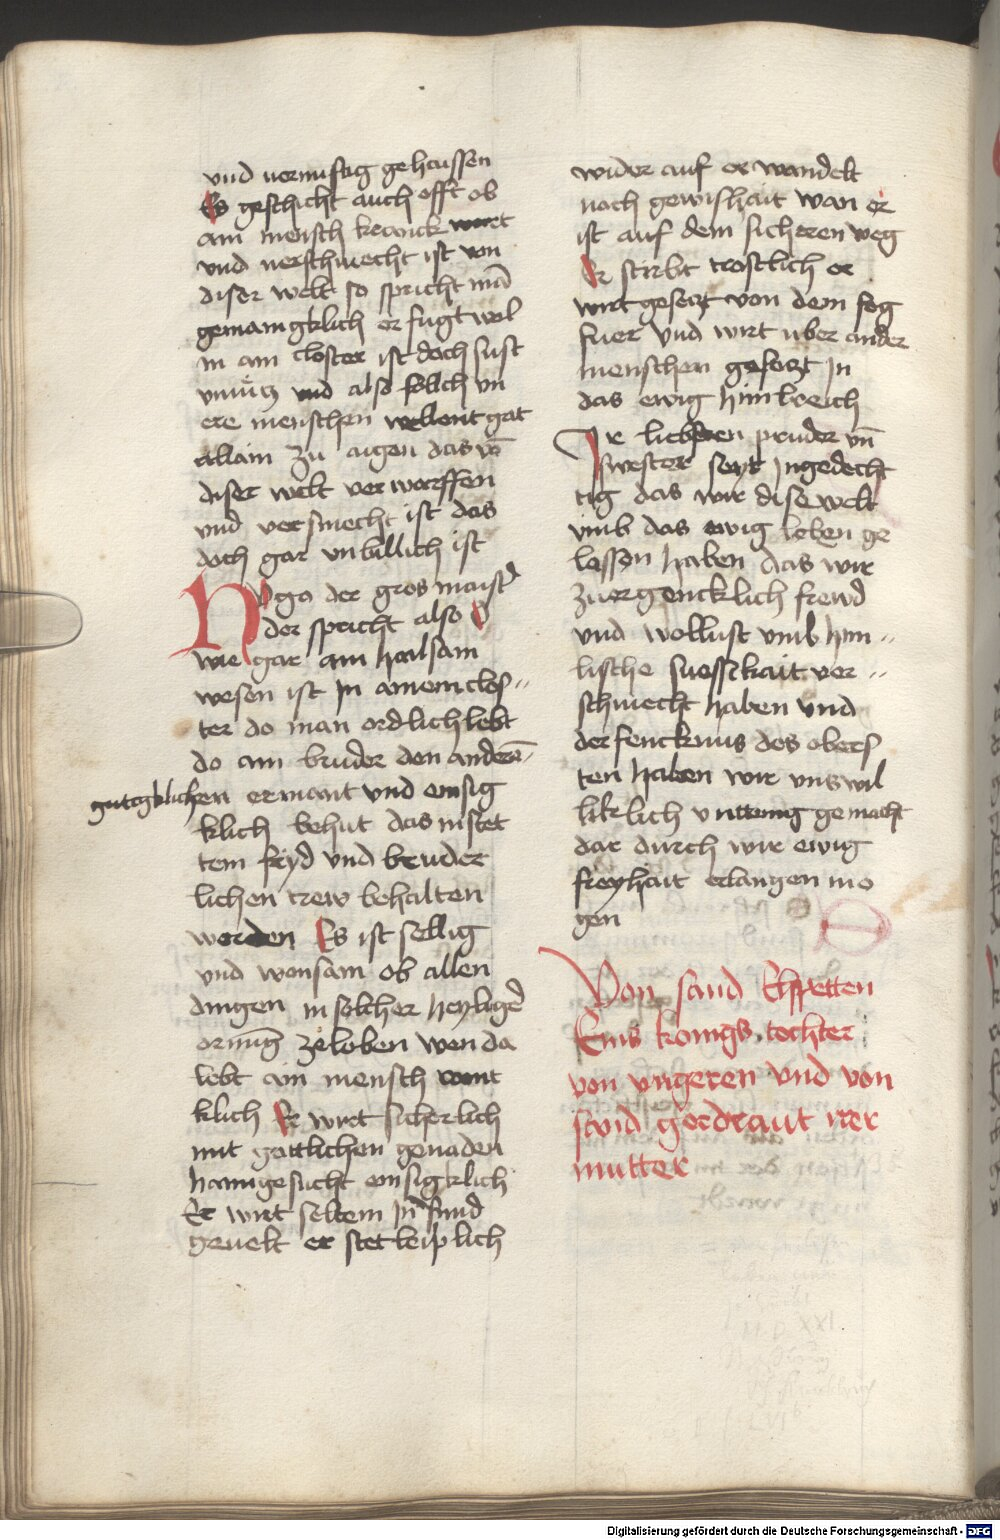 vnd vernuftig gehaissen
Es geschicht auch offt ob
ain mensch kranck wirt
vnd verschmecht ist von
diser welt so spricht mā
gemaingklich er fugt wol
in ain closter ist doch sust
vnnücz vnd also sölich vn
ere menschen wellent gat
allain zu aigen das vō
diser welt verworffen
vnd versmecht ist das
doch gar vnbillich ist
Hugo der gros maist͛
der spricht also O
wie gar ain hailsam
wesen ist in ainem clos〃
ter do man ordlich lebt
do ain bruder den anderē
gutigklichen ermant vnd emsig
klich behut das in stet
tem fryd vnd bruder
lichen trew behalten
werden Es ist sellig
vnd wonsam ob allen
dingen in solcher heylig͛
ornūg ze leben wen da
lebt ain mensch
klich Er wirt sicherlich
mit gottlichen genaden
haimgesucht emsigklich
Er wirt seltem in sund
geuelt er stet leiplich
wider auf er wandelt
noch gewishait wan er
ist auf dem sicheren weg
Er stirbt trostlich er
wirt gefeczt von dem feg
fuer vnd wirt uber ander
menschen gesetzt in
das ewig himlreich
Ir liebsten pruder vn̄
swester seyt ingedecht
tig das wir dise welt
vmb das ewig leben ge
lassen haben das wir
zuergencklich frewd
vnd wollust vmb him〃
lische suessikait ver〃
schmecht haben vnd
der fencknus des obers
ten haben wir vns wil
liklich vnttenig gemacht
dar durch wir ewig
freyhait erlangen mo
gen
Von sand Elspetten
Eins konigs tochter
von vngeren vnd von
sand gerdraut irer
mutter
Digitalisierung gefördert durch die Deutsche Forschungsgemeinschaft - DFG